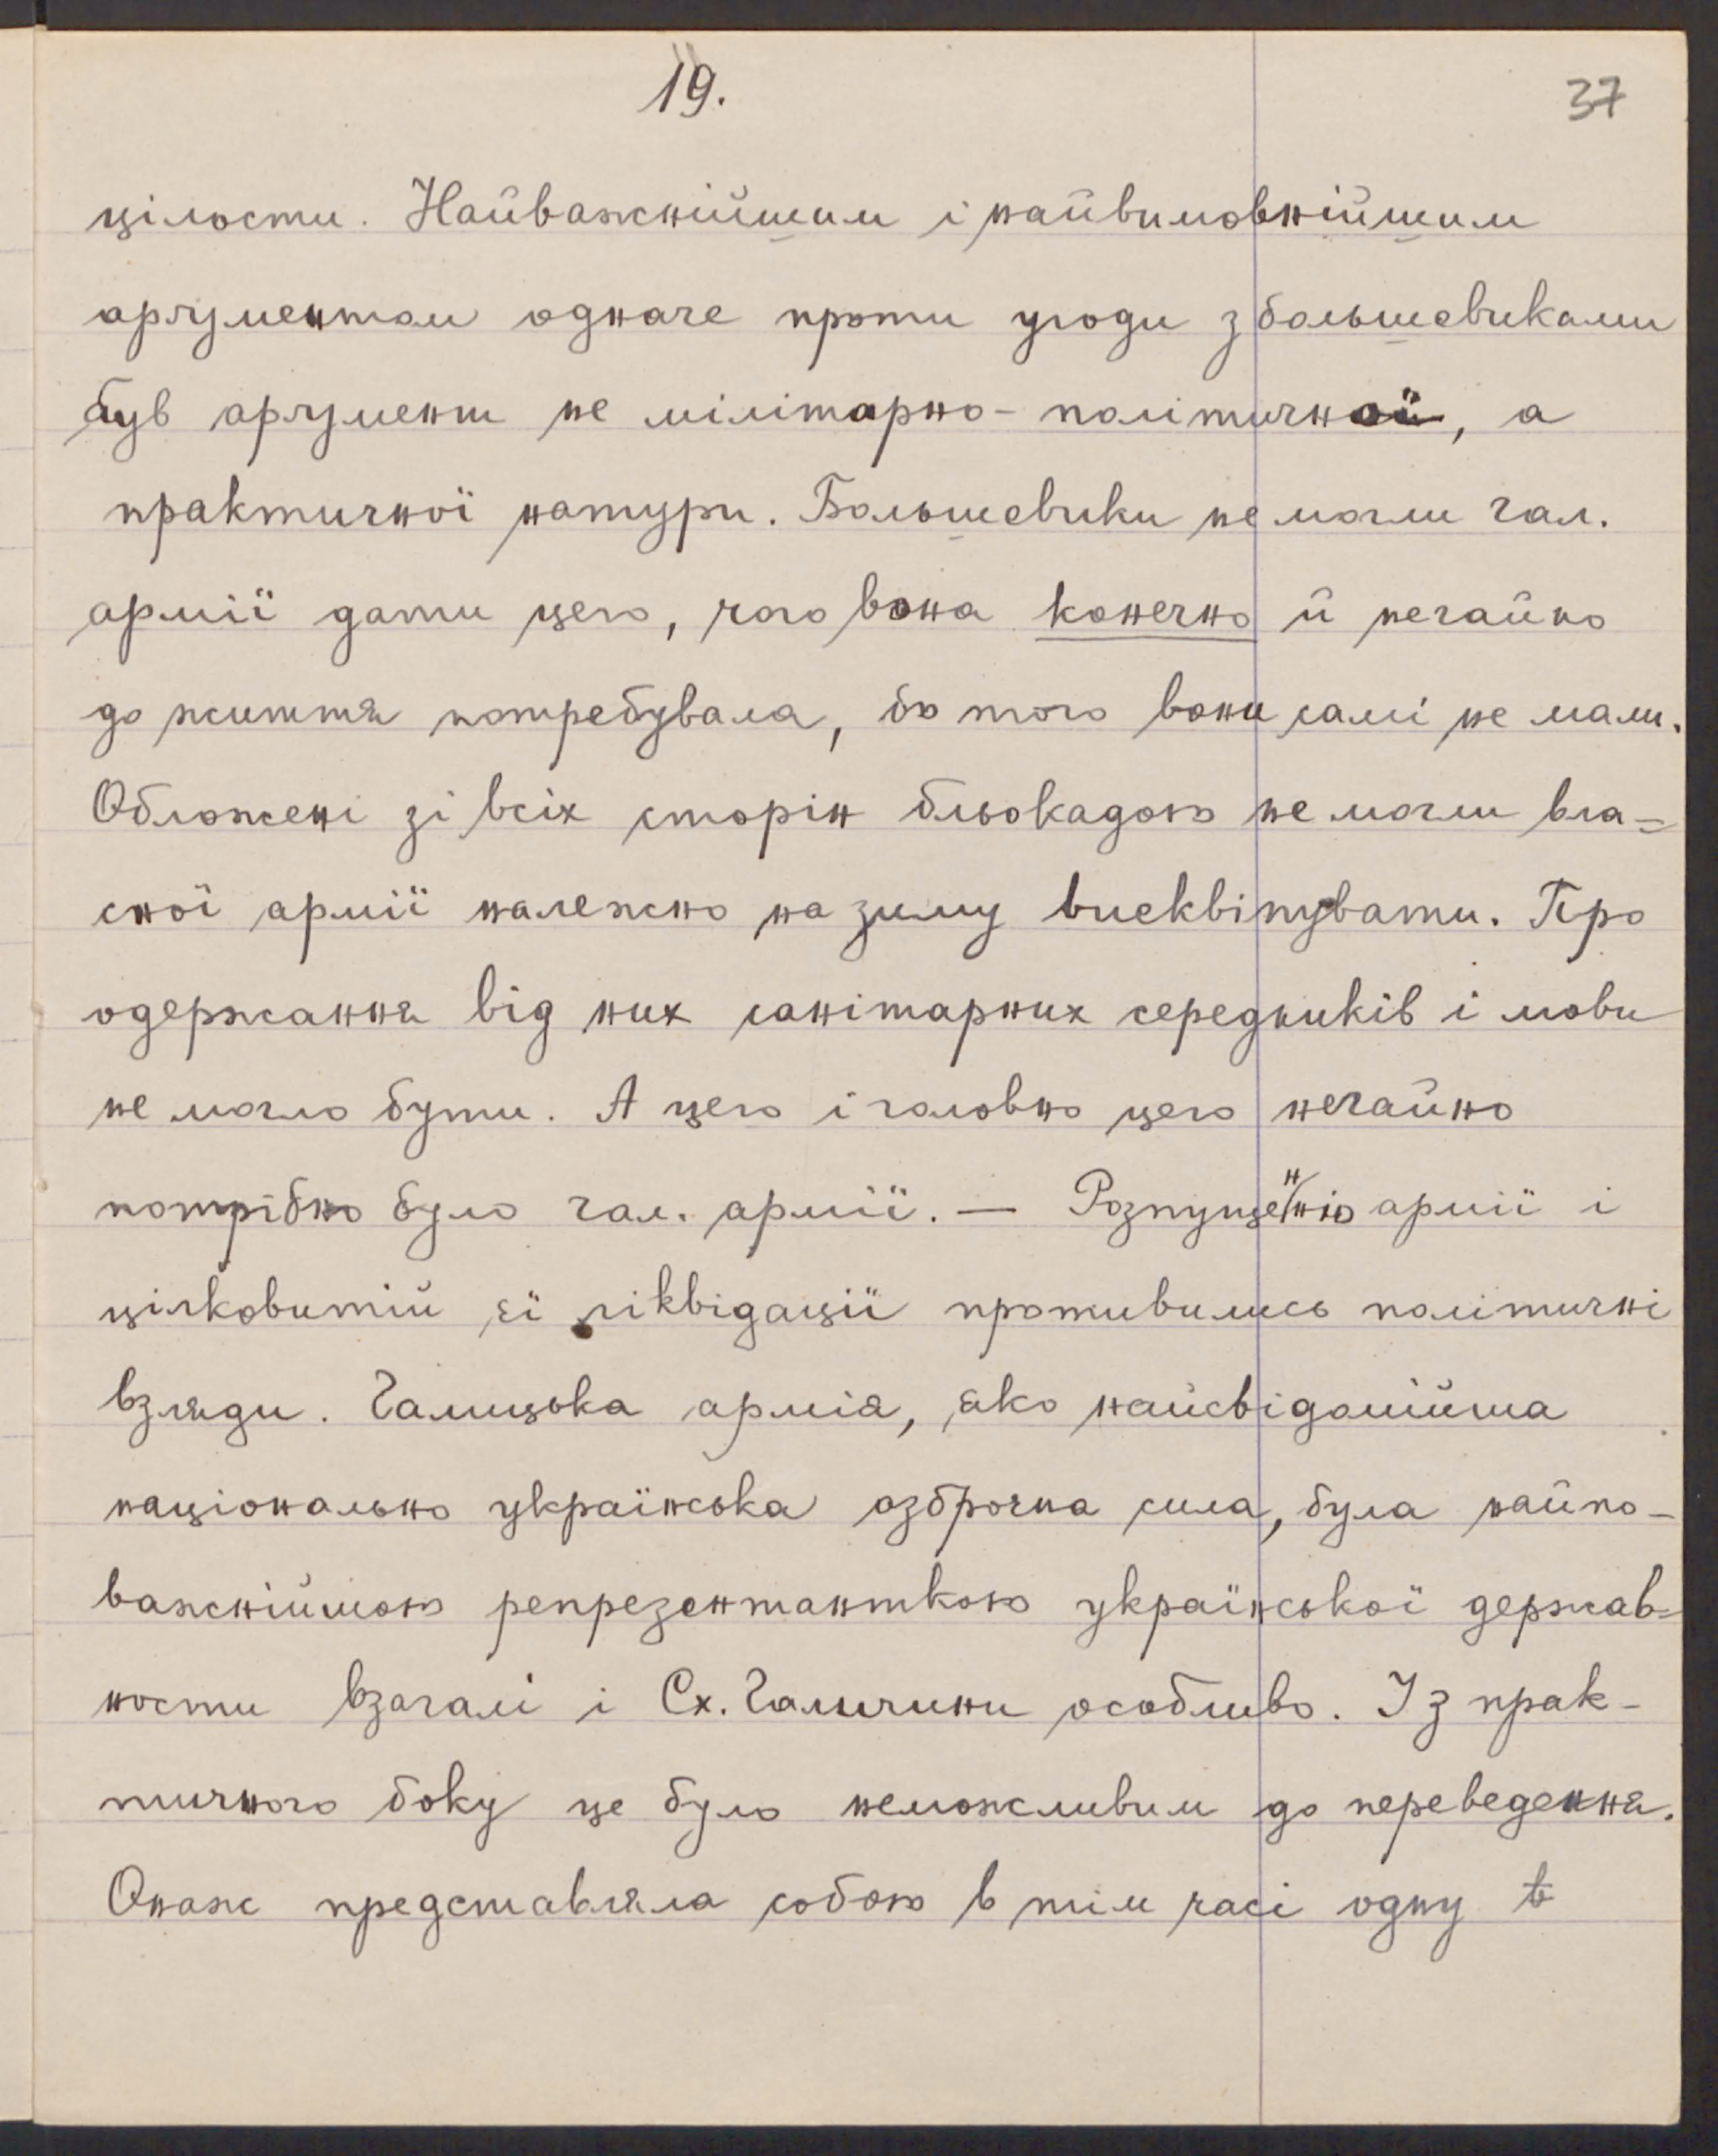 19.
37
цілости. Найважнійшим і найвимовнійшим
аргументом одначе проти угоди з большевиками
був аргумент не мілітарно-політичної, а
практичної натури. Большевики не могли гал.
армії дати цего, чого вона конечно й негайно
до життя потребувала, бо того вони самі не мали.
Обложені зі всіх сторін бльокадою не могли вла=
сної армії належно на зиму виеквіпувати. Про
одержання від них санітарних середників і мови
не могло бути. А цего і головно цего негайно
потрібно було гал. армії. — Розпущенню армії і
цілковитій єї ліквідації противились політичні
взгляди. Галицька армія, яко найсвідомійша
національно українська озброєна сила, була найпо-
важнійшою репрезентанткою української держав=
ности взагалі і Сх. Галичини особливо. Із прак-
тичного боку це було неможливим до переведення.
Онаж представляла собою в тім часі одну в